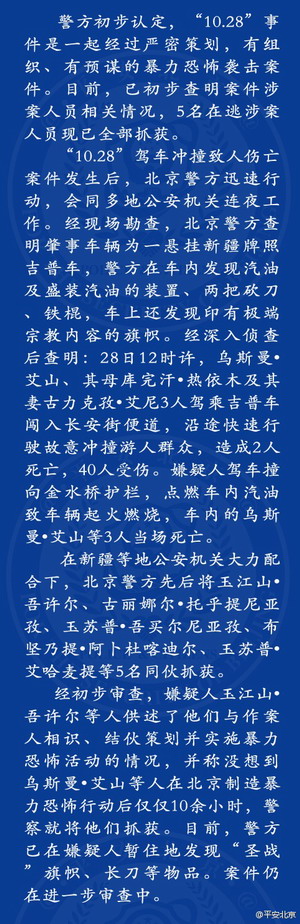 警方初步认定，“10.28”事
件是一起经过严密策划，有组
织、有预谋的暴力恐怖袭击案
件。目前，已初步查明案件涉
案人员相关情况，5名在逃涉案
人员现已全部抓获。
“10.28”驾车冲撞致人伤亡
案件发生后，北京警方迅速行
动，会同多地公安机关连夜工
作。经现场勘查，北京警方查
明肇事车辆为一悬挂新疆牌照
吉普车，警方在车内发现汽油
及盛装汽油的装置、两把砍刀
、铁棍，车上还发现印有极端
宗教内容的旗帜。经深入侦查
后查明：28日12时许，乌斯曼•
艾山、其母库完汗•热依木及其
妻古力克孜•艾尼3人驾乘吉普车
闯入长安街便道，沿途快速行
驶故意冲撞游人群众，造成2人
死亡，40人受伤。嫌疑人驾车撞
向金水桥护栏，点燃车内汽油
致车辆起火燃烧，车内的乌斯
曼•艾山等3人当场死亡。
在新疆等地公安机关大力配
合下，北京警方先后将玉江山•
吾许尔、古丽娜尔•托乎提尼亚
孜、玉苏普•吾买尔尼亚孜、布
坚乃提•阿卜杜喀迪尔、玉苏普•
艾哈麦提等5名同伙抓获。
经初步审查，嫌疑人玉江山•
吾许尔等人供述了他们与作案
人相识、结伙策划并实施暴力
恐怖活动的情况，并称没想到
乌斯曼•艾山等人在北京制造暴
力恐怖行动后仅仅10余小时，警
察就将他们抓获。目前，警方
已在嫌疑人暂住地发现“圣战
”旗帜、长刀等物品。案件仍
在进一步审查中。
@平安北京